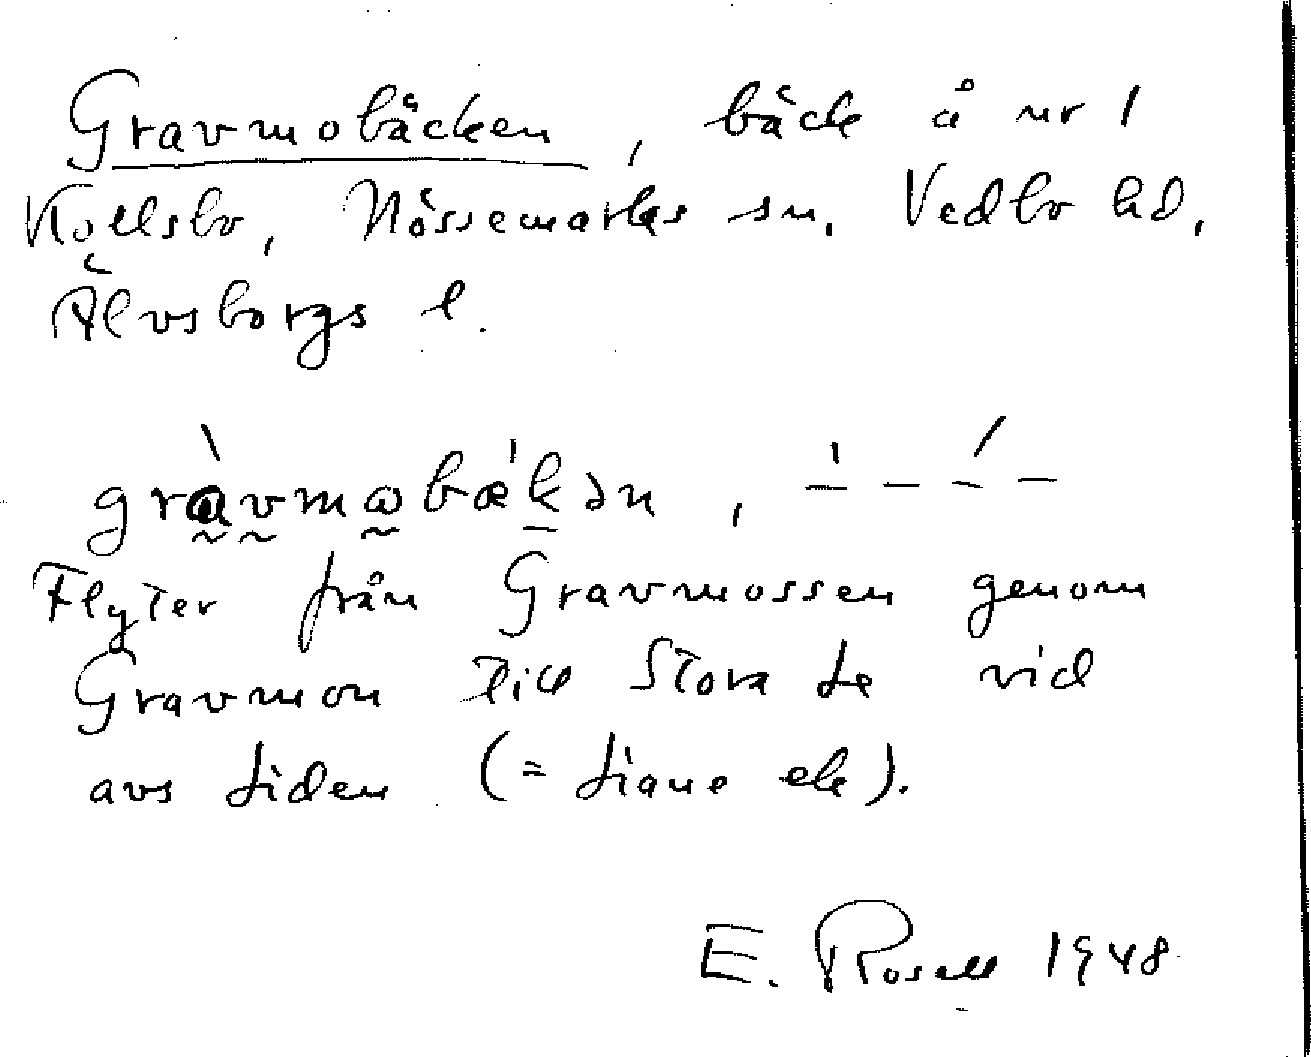 Gravmobäcken, bäck å nr 1
Kollsbo, Nössemarks sn. Vedbo hd,
Älvsborgs l.
gràvmɷbækən,
Flyter från Gravmossen genom
Gravmon till Stora Le vid
avs Liden (= Liane ek).
E. Rosell 1948